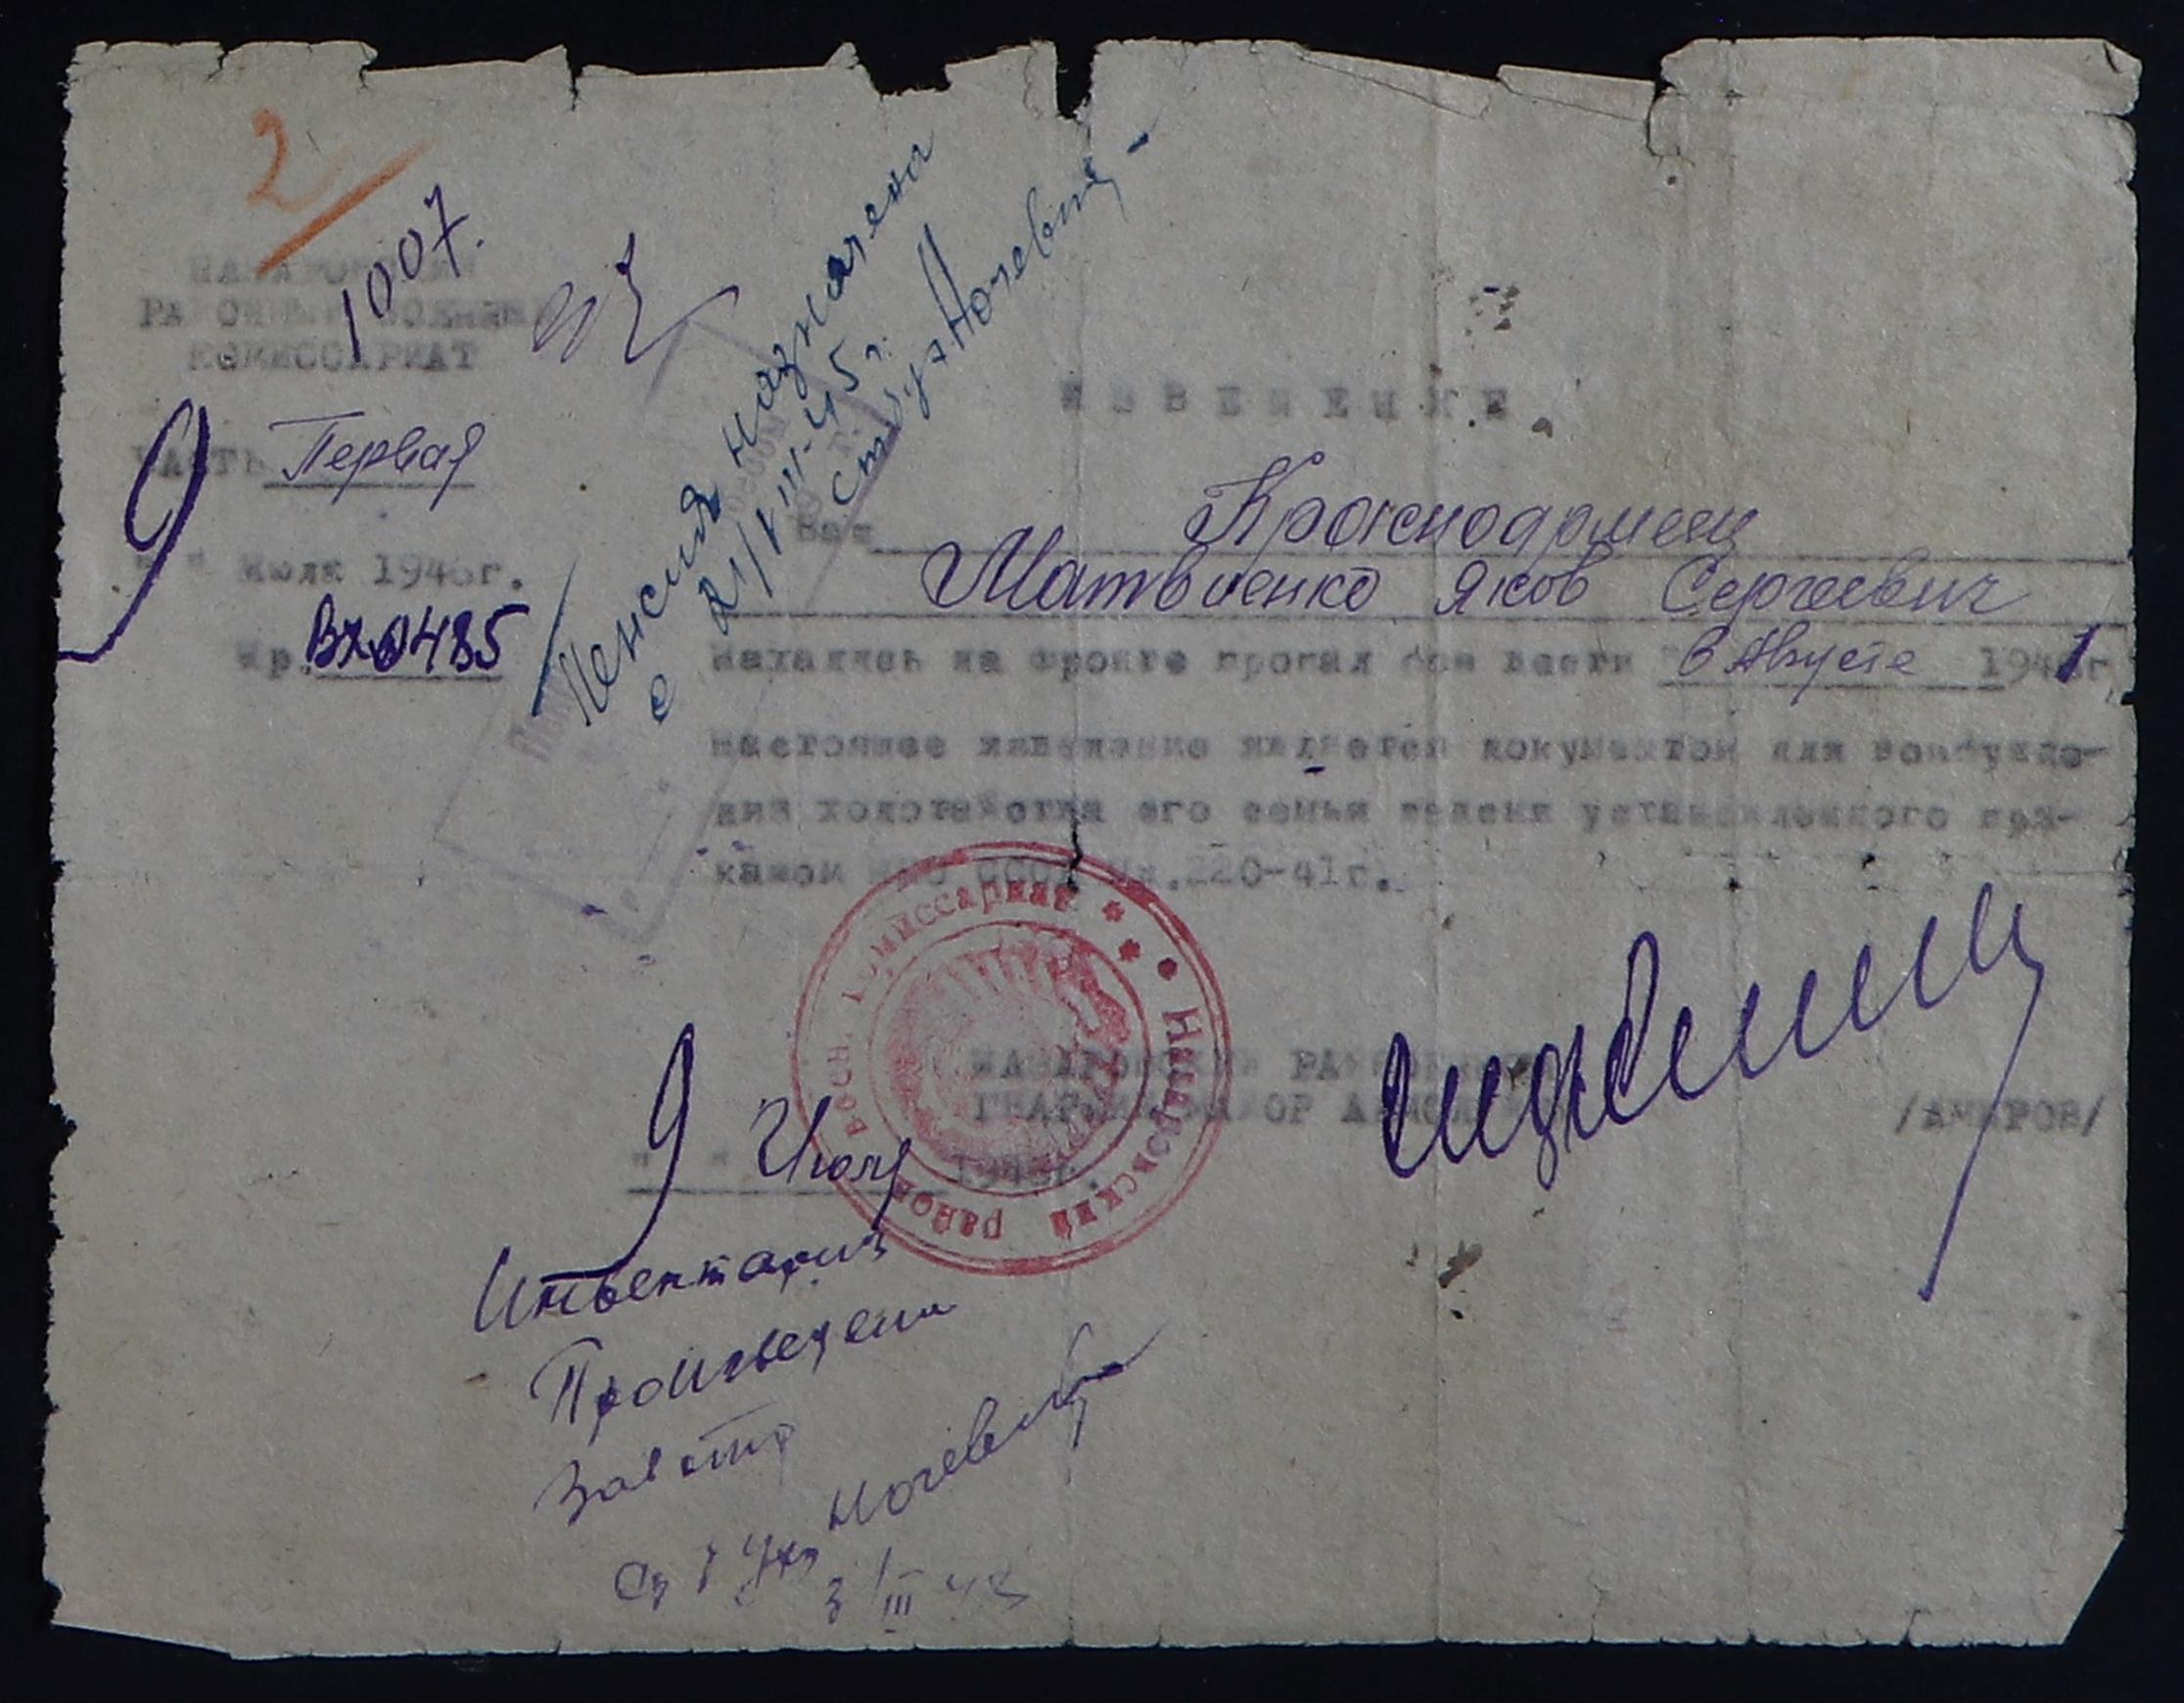 2
1007.
НАЗАРОВСКИЙ
РАЙОННЫЙ ВОЕННЫЙ
КОМИССАРИАТ
ЧАСТЬ Первая
9
" " июля 1946г.
Нр. Вх 1485
Пенсия назначена
с 21/VIII-45 г.
И З В Е Щ Е Н И Е.
Ваш Красноармеец
Матвиенко Яков Сергеевич
находясь на фронте пропал без вести " в Августе 1941г.
настоящее извещение является документом для возбужде-
ния ходатайства его семьи пенсии установленного при-
казом НКО СССР Нр.220-41г.
НАЗАРОВСКИЙ РАЙВОЕНКОМ
ГВАРДИИ МАЙОР
/АМИРОВ/
"9" Июля 194 г.
Назаровский район. Воен. Комиссариат
Произведена
3/III 48